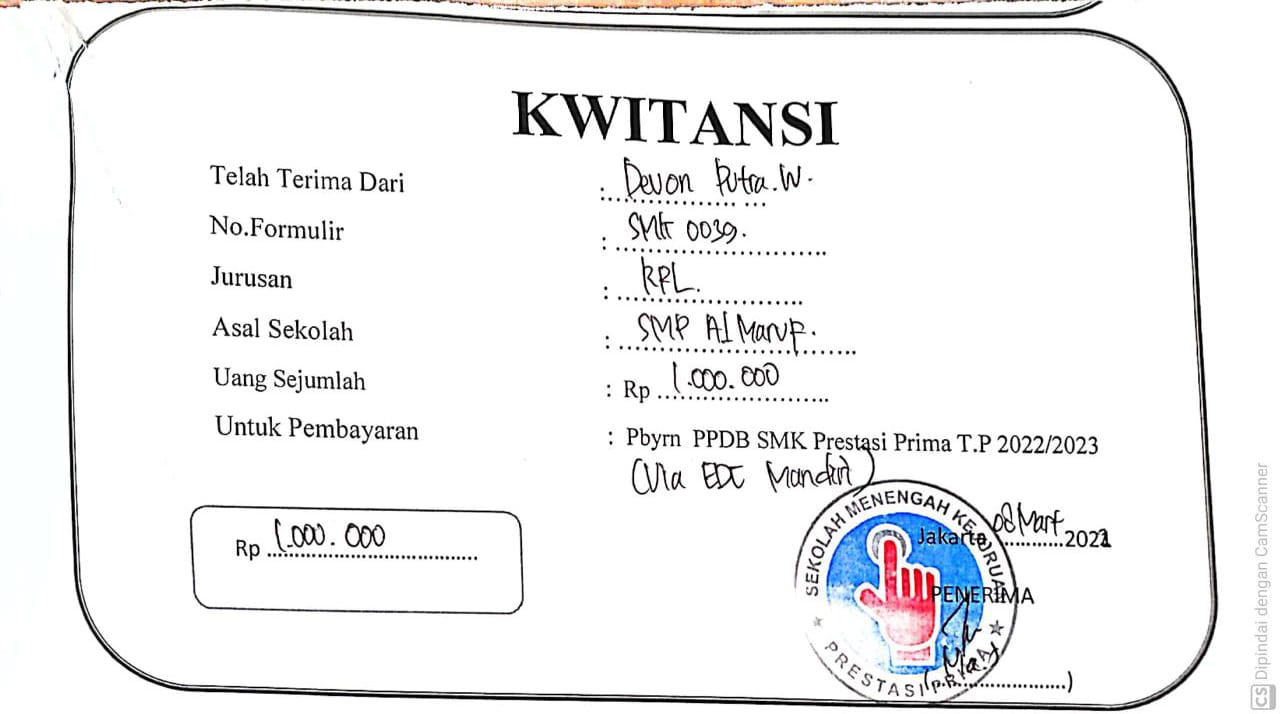 KWITANSI
Telah Terima Dari : Devon Putra.W.
No.Formulir : SMK 0039.
Jurusan : RPL.
Asal Sekolah : SMP Al Maruf.
Uang Sejumlah : Rp 1.000.000
Untuk Pembayaran : Pbyrn PPDB SMK Prestasi Prima T.P 2022/2023
(Via EDC Mandiri)
Rp 1.000.000
SEKOLAH MENENGAH KEJURUAN
PRESTASI PRIMA
Jakarta, 08 Mart 2022
PENERIMA
CS Dipindai dengan CamScanner